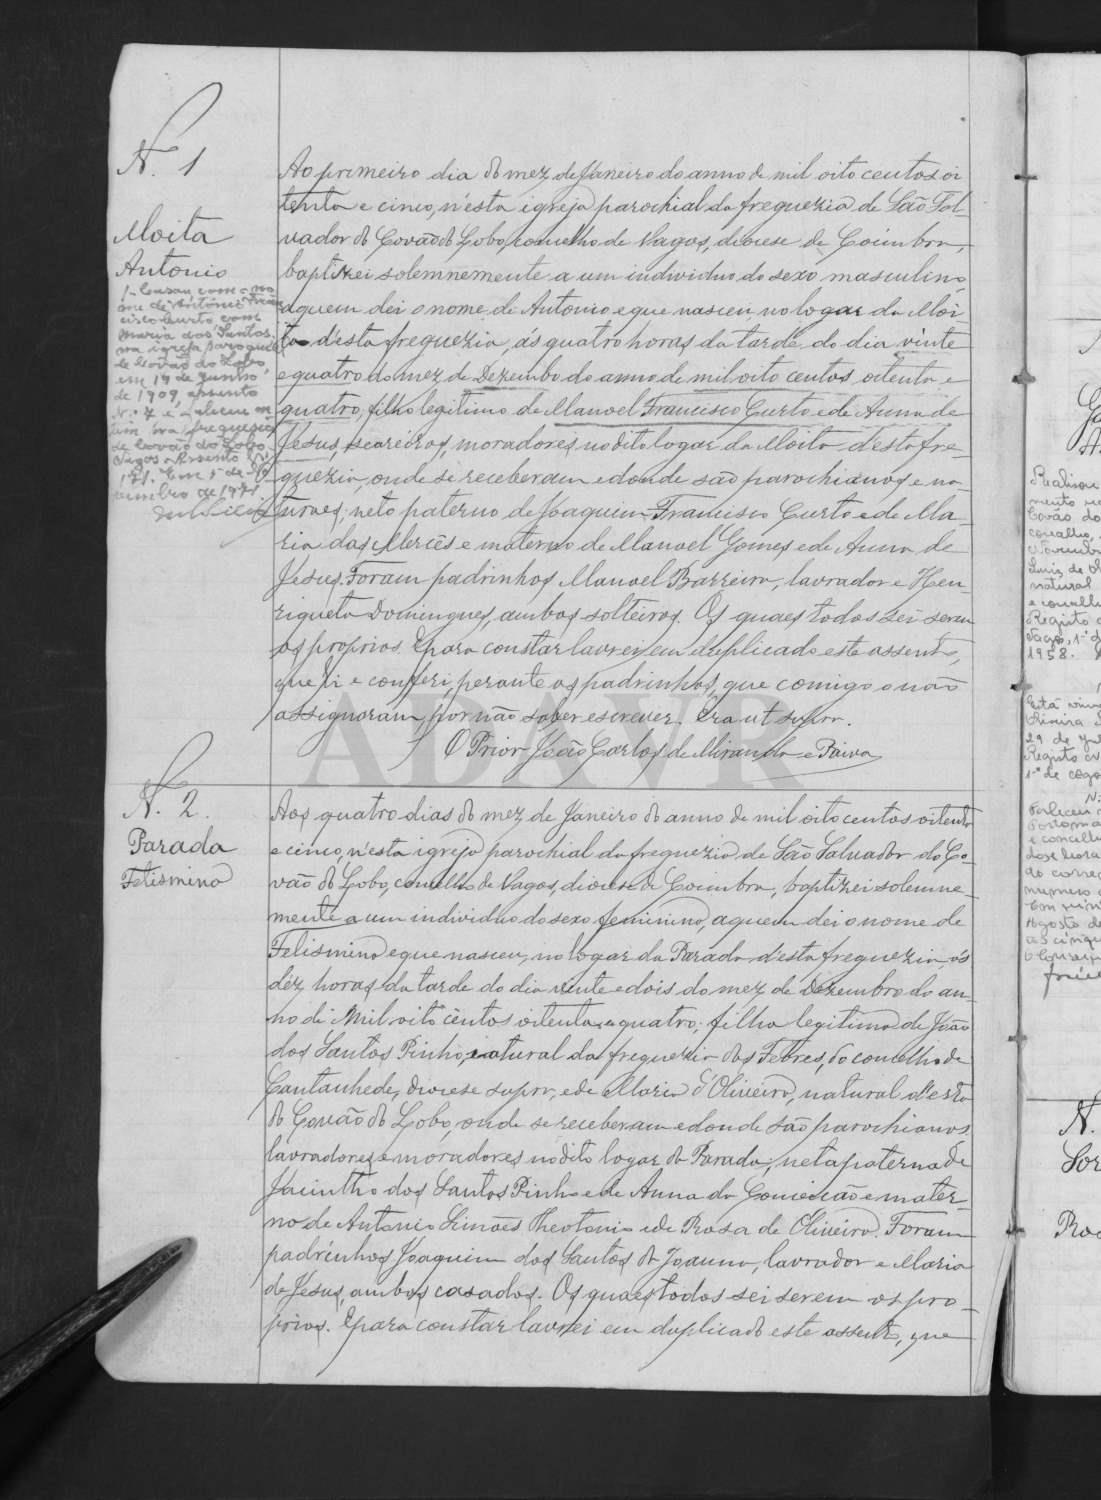 N. 1
Moita
Antonio
1- Casou com o no
me de António Fran
cisco Curto com
Maria dos Santos
na igreja paroquial
de Covão do Lobo
em 19 de Junho
de 1909, assento
N.º 7 e faleceu
na freguesia
de Covão do Lobo
Vagos Assento N.º
Em 5 de No
vembro de 1971.
Ao primeiro dia do mez de Janeiro do anno de mil oito centos oi
tenta e cinco, n'esta igreja parochial da freguezia de São Sal-
vador do Covão do Lobo, concelho de Vagos, diocese de Coimbra,
baptizei solemnemente a um individuo do sexo masculino,
aquem dei o nome de Antonio e que nasceu no logar da Moi
ta d'esta freguezia, ás quatro horas da tarde do dia vinte
e quatro do mez de Dezembo do anno de mil oito centos oitenta e
quatro, filho legitimo de Manoel Francisco Curto e de Anna de
Jesus, seareiros, moradores no dito logar da Moita d'esta fre-
guezia, onde se receberam e donde são parochianos e na-
turaes; neto paterno de Joaquim Francisco Curto e de Ma-
ria das Mercês e materno de Manoel Gomes e de Anna de
Jesus. Foram padrinhos Manoel Barreira, lavrador e Hen-
riqueta Domingues, ambos solteiros. Os quaes todos sei serem
os proprios. E para constar lavrei em duplicado este assento,
que li e conferi perante os padrinhos, que comigo o não
assignaram, por não saber escrever. Era ut supra.
O Prior João Carlos de Miranda e Paiva
N. 2.
Parada
Felismina
Aos quatro dias do mez de Janeiro do anno de mil oito centos oitenta
e cinco, n'esta igreja parochial da freguezia de São Salvador do Co-
vão do Lobo, concelho de Vagos, diocese de Coimbra, baptizei solemne-
mente a um individuo do sexo feminino, aquem dei o nome de
Felismina e que nasceu, no logar da Parada d'esta freguezia, ás
déz horas da tarde do dia vinte e dois do mez de Dezembro do an-
no de Mil oito centos oitenta e quatro; filha legitima de João
dos Santos Pinho, natural da freguezia das Febres, do concelho de
Cantanhede, diocese supra, e de Maria d'Oliveira, natural d'esta
do Covão do Lobo, onde se receberam e donde são parochianos,
lavradores e moradores no dito logar da Parada, neta paterna de
Jacintho dos Santos Pinho e de Anna da Conceicão e mater-
no de Antonio Simões Theotonio e de Rosa de Oliveira. Foram
padrinhos Joaquim dos Santos da Joanna, lavrador e Maria
de Jesus, ambos casados. Os quaes todos sei serem os pro-
prios. E para constar lavrei em duplicado este assento, que
ADAVR
Está
29 de
Registo
1958.
N.